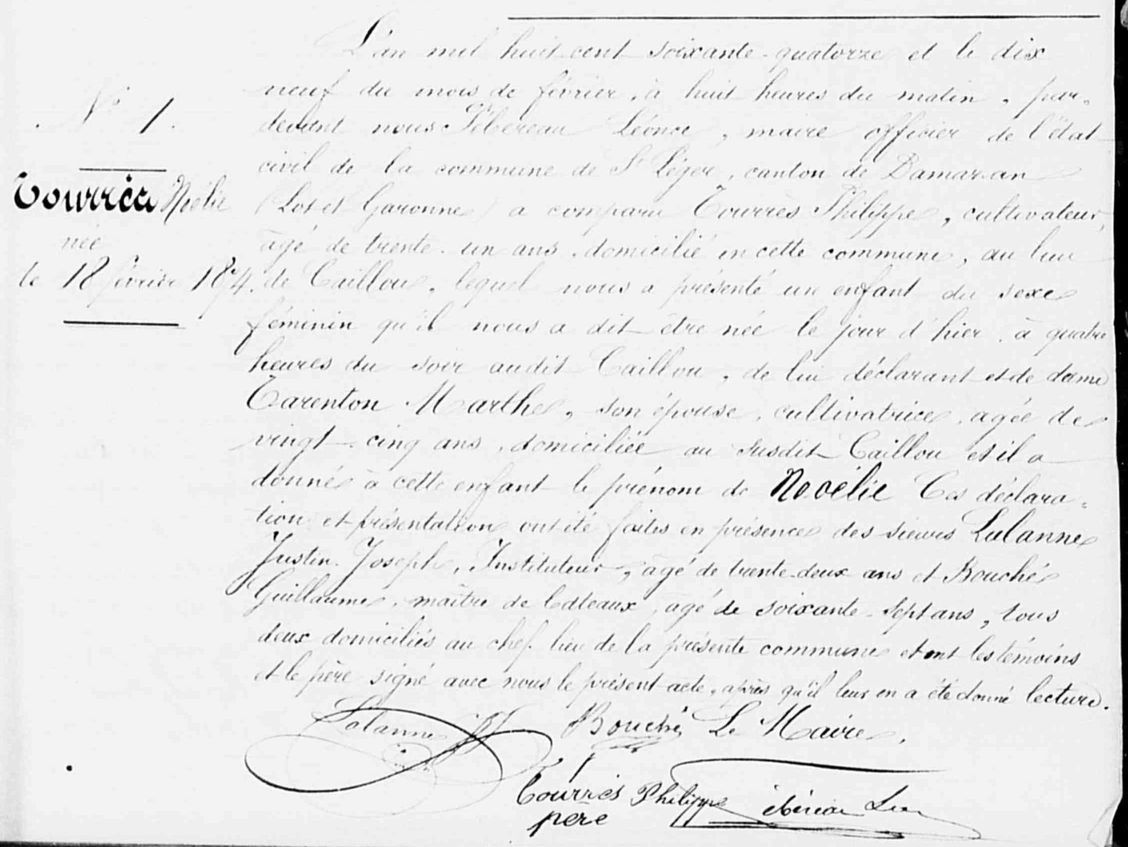 N° 1.
Tourrès Noélie
née
le 18 février 1874.
L'an mil huit cent soixante-quatorze et le dix
neuf du mois de février, à huit heures du matin, par-
devant nous Fébereau Léonce, maire officier de l'état
civil de la commune de St Léger, canton de Damazan
(Lot et Garonne) a comparu Tourrès Philippe, cultivateur,
âgé de trente-un ans, domicilié en cette commune, au lieu
de Caillou, lequel nous a présenté un enfant du sexe
féminin qu'il nous a dit être née le jour d'hier, à quatre
heures du soir audit Caillou, de lui déclarant et de dame
Tarenton Marthe, son épouse, cultivatrice, agée de
vingt-cinq ans, domiciliée au susdit Caillou et il a
donné à cette enfant le prénom de Noélie Ces déclara-
tion et présentation ont été faites en présence des sieurs Lalanne
Justin Joseph, Instituteur, âgé de trente-deux ans et Bouché
Guillaume, maître de bateaux, âgé de soixante-sept ans, tous
deux domiciliés au chef-lieu de la présente commune et ont les témoins
et le père signé avec nous le présent acte, après qu'il leur en a été donné lecture.
Lalanne Bouché Le Maire,
Tourrès Philippe
père